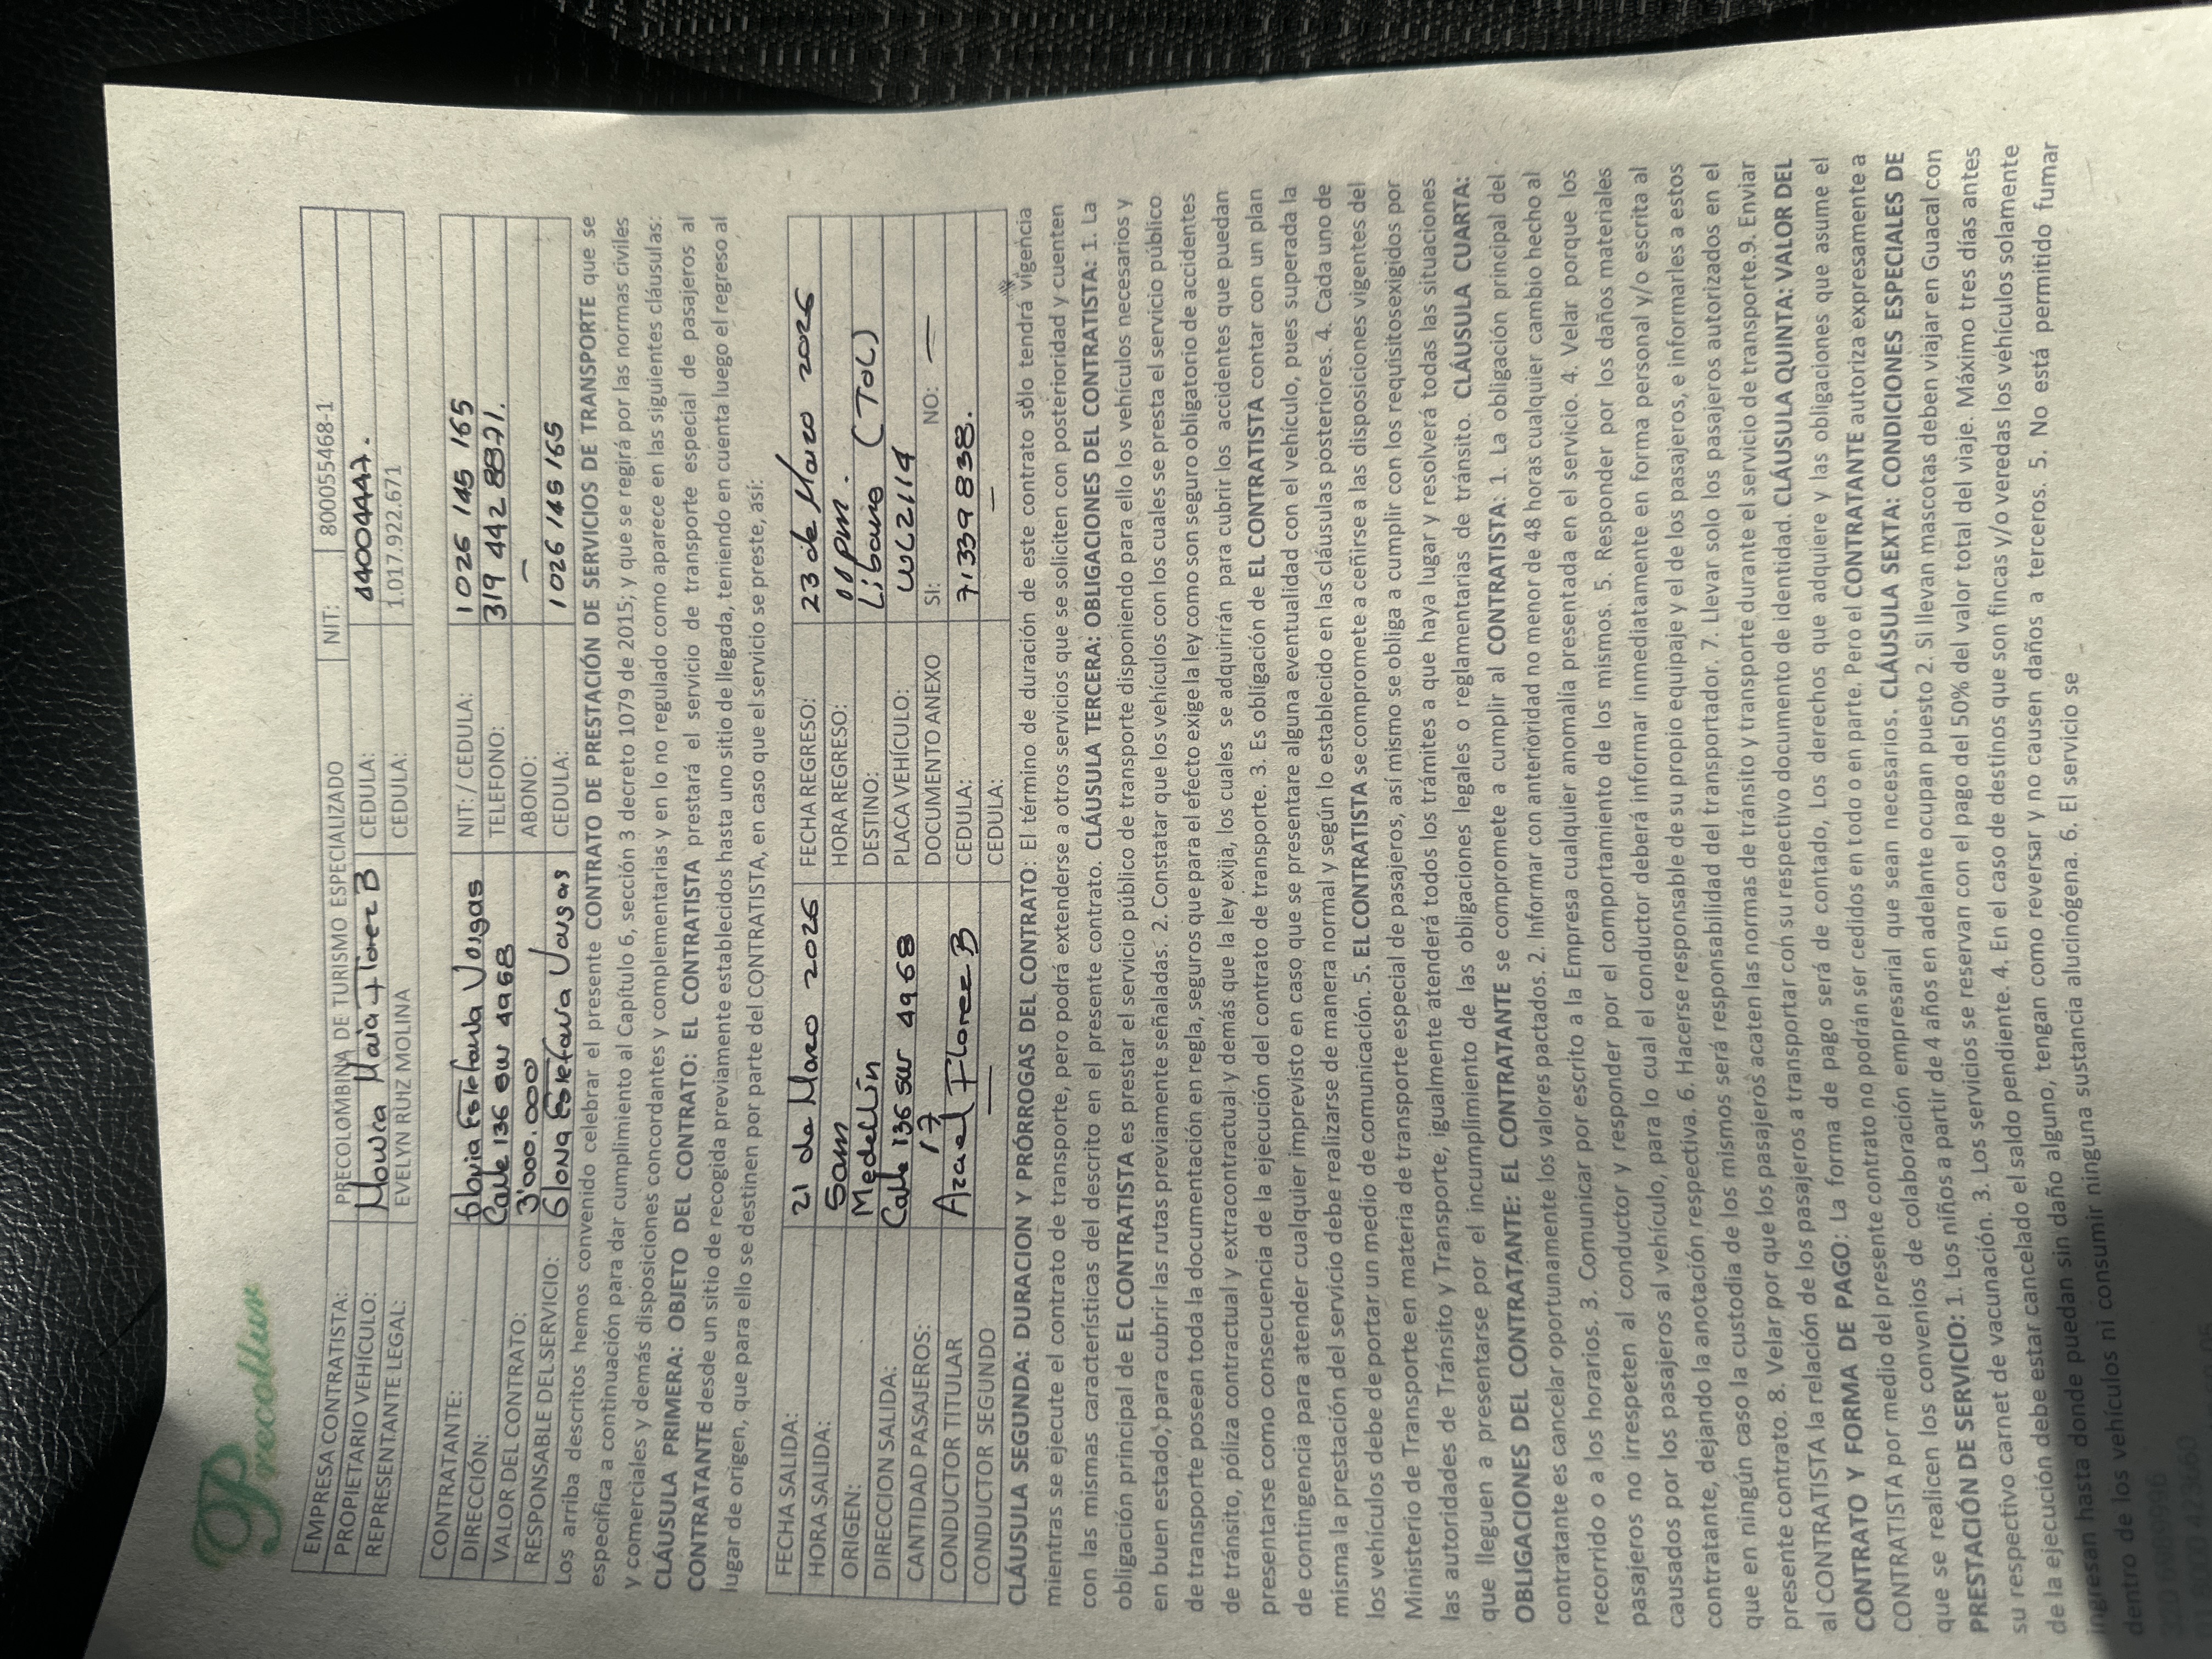 Precoltur
EMPRESA CONTRATISTA: PRECOLOMBINA DE TURISMO ESPECIALIZADO NIT: 800055468-1
PROPIETARIO VEHÍCULO: Maria Florez B CEDULA:
REPRESENTANTE LEGAL: EVELYN RUIZ MOLINA CEDULA: 1.017.922.671
CONTRATANTE: Estefania Vargas NIT: / CEDULA: 1026 145 165
DIRECCIÓN: Calle 136 sur 4968 TELEFONO: 319 442 8871.
VALOR DEL CONTRATO: 3'000.000 ABONO: —
RESPONSABLE DEL SERVICIO: Estefania Vargas CEDULA: 1026 145 165
Los arriba descritos hemos convenido celebrar el presente CONTRATO DE PRESTACIÓN DE SERVICIOS DE TRANSPORTE que se
especifica a continuación para dar cumplimiento al Capítulo 6, sección 3 decreto 1079 de 2015; y que se regirá por las normas civiles
y comerciales y demás disposiciones concordantes y complementarias y en lo no regulado como aparece en las siguientes cláusulas:
CLÁUSULA PRIMERA: OBJETO DEL CONTRATO: EL CONTRATISTA prestará el servicio de transporte especial de pasajeros al
CONTRATANTE desde un sitio de recogida previamente establecidos hasta uno sitio de llegada, teniendo en cuenta luego el regreso al
lugar de origen, que para ello se destinen por parte del CONTRATISTA, en caso que el servicio se preste, así:
FECHA SALIDA: 21 de Marzo 2026 FECHA REGRESO: 23 de Marzo 2026
HORA SALIDA: 5am HORA REGRESO: pm.
ORIGEN: Medellín DESTINO: Libano (TOL)
DIRECCION SALIDA: Calle 136 sur 4968 PLACA VEHÍCULO: WLZ114
CANTIDAD PASAJEROS: 17 DOCUMENTO ANEXO SI: NO: —
CONDUCTOR TITULAR Azael Florez B CEDULA: 71339838.
CONDUCTOR SEGUNDO — CEDULA: —
CLÁUSULA SEGUNDA: DURACION Y PRÓRROGAS DEL CONTRATO: El término de duración de este contrato sólo tendrá vigencia
mientras se ejecute el contrato de transporte, pero podrá extenderse a otros servicios que se soliciten con posterioridad y cuenten
con las mismas características del descrito en el presente contrato. CLÁUSULA TERCERA: OBLIGACIONES DEL CONTRATISTA: 1. La
obligación principal de EL CONTRATISTA es prestar el servicio público de transporte disponiendo para ello los vehículos necesarios y
en buen estado, para cubrir las rutas previamente señaladas. 2. Constatar que los vehículos con los cuales se presta el servicio público
de transporte posean toda la documentación en regla, seguros que para el efecto exige la ley como son seguro obligatorio de accidentes
de tránsito, póliza contractual y extracontractual y demás que la ley exija, los cuales se adquirirán para cubrir los accidentes que puedan
presentarse como consecuencia de la ejecución del contrato de transporte. 3. Es obligación de EL CONTRATISTA contar con un plan
de contingencia para atender cualquier imprevisto en caso que se presentare alguna eventualidad con el vehículo, pues superada la
misma la prestación del servicio debe realizarse de manera normal y según lo establecido en las cláusulas posteriores. 4. Cada uno de
los vehículos debe de portar un medio de comunicación. 5. EL CONTRATISTA se compromete a ceñirse a las disposiciones vigentes del
Ministerio de Transporte en materia de transporte especial de pasajeros, así mismo se obliga a cumplir con los requisitosexigidos por
las autoridades de Tránsito y Transporte, igualmente atenderá todos los trámites a que haya lugar y resolverá todas las situaciones
que lleguen a presentarse por el incumplimiento de las obligaciones legales o reglamentarias de tránsito. CLÁUSULA CUARTA:
OBLIGACIONES DEL CONTRATANTE: EL CONTRATANTE se compromete a cumplir al CONTRATISTA: 1. La obligación principal del
contratante es cancelar oportunamente los valores pactados. 2. Informar con anterioridad no menor de 48 horas cualquier cambio hecho al
recorrido o a los horarios. 3. Comunicar por escrito a la Empresa cualquier anomalía presentada en el servicio. 4. Velar porque los
pasajeros no irrespeten al conductor y responder por el comportamiento de los mismos. 5. Responder por los daños materiales
causados por los pasajeros al vehículo, para lo cual el conductor deberá informar inmediatamente en forma personal y/o escrita al
contratante, dejando la anotación respectiva. 6. Hacerse responsable de su propio equipaje y el de los pasajeros, e informarles a estos
que en ningún caso la custodia de los mismos será responsabilidad del transportador. 7. Llevar solo los pasajeros autorizados en el
presente contrato. 8. Velar por que los pasajeros acaten las normas de tránsito y transporte durante el servicio de transporte.9. Enviar
al CONTRATISTA la relación de los pasajeros a transportar con su respectivo documento de identidad. CLÁUSULA QUINTA: VALOR DEL
CONTRATO Y FORMA DE PAGO: La forma de pago será de contado, Los derechos que adquiere y las obligaciones que asume el
CONTRATISTA por medio del presente contrato no podrán ser cedidos en todo o en parte. Pero el CONTRATANTE autoriza expresamente a
que se realicen los convenios de colaboración empresarial que sean necesarios. CLÁUSULA SEXTA: CONDICIONES ESPECIALES DE
PRESTACIÓN DE SERVICIO: 1. Los niños a partir de 4 años en adelante ocupan puesto 2. Si llevan mascotas deben viajar en Guacal con
su respectivo carnet de vacunación. 3. Los servicios se reservan con el pago del 50% del valor total del viaje. Máximo tres días antes
de la ejecución debe estar cancelado el saldo pendiente. 4. En el caso de destinos que son fincas y/o veredas los vehículos solamente
ingresan hasta donde puedan sin daño alguno, tengan como reversar y no causen daños a terceros. 5. No está permitido fumar
dentro de los vehículos ni consumir ninguna sustancia alucinógena. 6. El servicio se